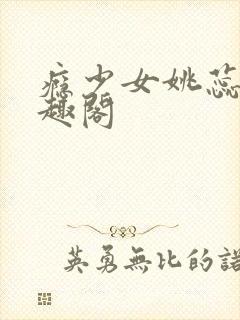 瘾少女姚蕊
趣阁
英勇無比的諾